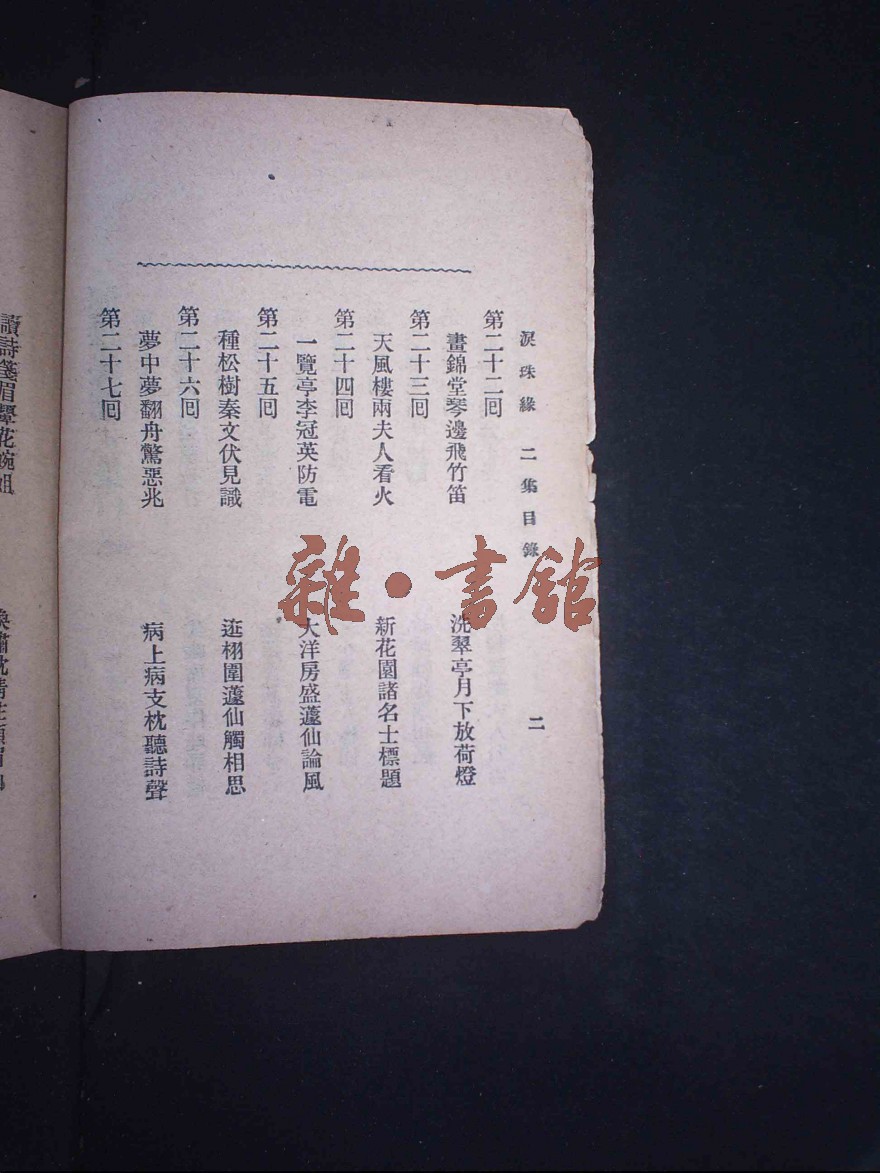 淚珠緣 二集目錄 二
第二十二回
畫錦堂琴邊飛竹笛 洗翠亭月下放荷燈
第二十三回
天風樓兩夫人看火 新花園諸名士標題
第二十四回
一覽亭李冠英防電 大洋房盛蘧仙論風
第二十五回
種松樹秦文伏見識 逛栩園蘧仙觸相思
第二十六回
夢中夢翻舟驚惡兆 病上病支枕聽詩聲
第二十七回
讀詩箋眉顰花婉姐
雜·書館